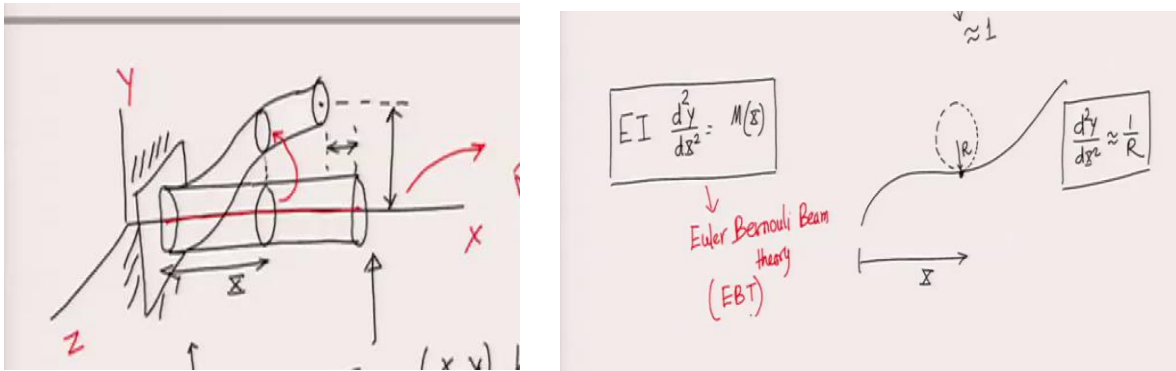 Y
X
X
Z
(X,Y)
≈1
EI d²y/dX² = M(X)
Euler Bernouli Beam
theory
(EBT)
R
d²y/dX² ≈ 1/R
X